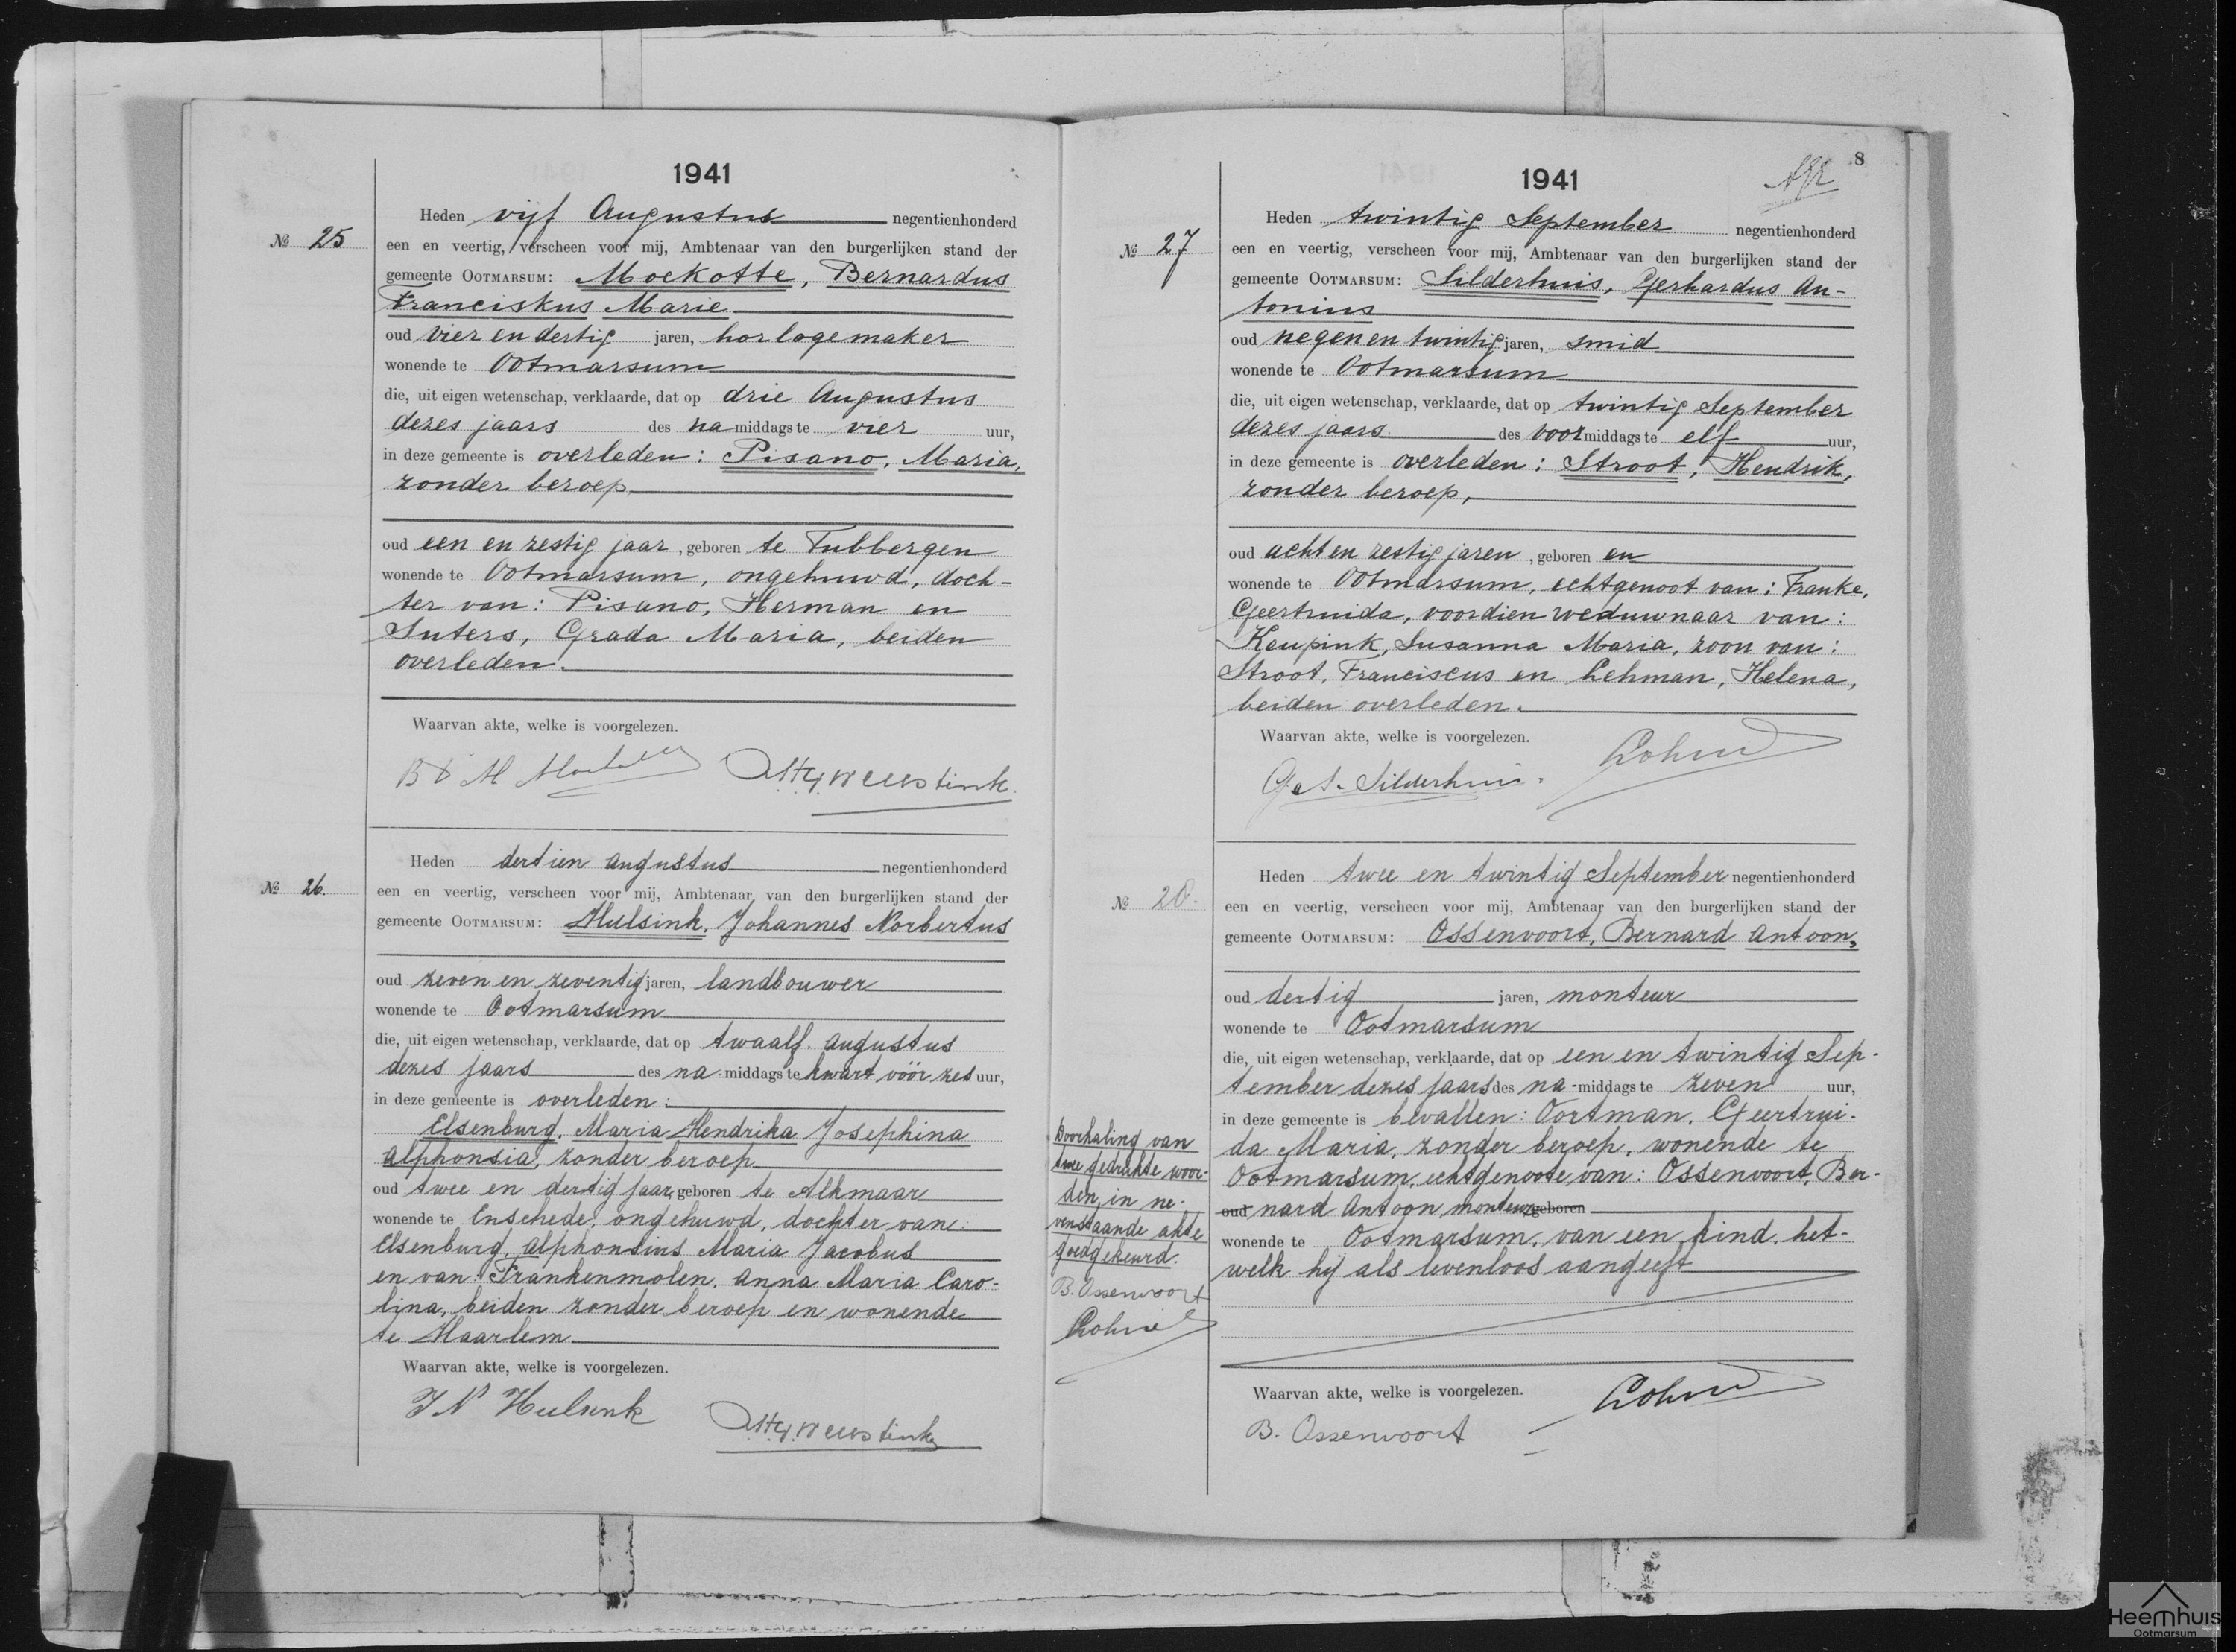 1941
Heden vijf Augustus negentienhonderd
№ 25
een en veertig, verscheen voor mij, Ambtenaar van den burgerlijken stand der
gemeente OOTMARSUM: Moekotte, Bernardus
Franciskus Marie
oud vier en dertig jaren, horlogemaker
wonende te Ootmarsum
die, uit eigen wetenschap, verklaarde, dat op drie Augustus
dezes jaars des na middags te vier uur,
in deze gemeente is overleden: Pisano, Maria,
zonder beroep,
oud een en zestig jaar, geboren te Tubbergen
wonende te Ootmarsum, ongehuwd, doch-
ter van: Pisano, Herman en
Suters, Grada Maria, beiden
overleden.
Waarvan akte, welke is voorgelezen.
Heden dertien augustus negentienhonderd
№ 26.
een en veertig, verscheen voor mij, Ambtenaar van den burgerlijken stand der
gemeente OOTMARSUM: Hulsink, Johannes Norbertus
oud zeven en zeventig jaren, landbouwer
wonende te Ootmarsum
die, uit eigen wetenschap, verklaarde, dat op twaalf augustus
dezes jaars des na-middags te kwart vóór zes uur,
in deze gemeente is overleden:
Elsenburg, Maria Hendrika Josephina
Alphonsia, zonder beroep
oud twee en dertig jaar, geboren te Alkmaar
wonende te Enschede, ongehuwd, dochter van
Elsenburg, Alphonsius Maria Jacobus
en van Frankenmolen, Anna Maria Caro-
lina, beiden zonder beroep en wonende
te Haarlem
Waarvan akte, welke is voorgelezen.
J N Hulsink
8
1941
Heden twintig September negentienhonderd
№ 27
een en veertig, verscheen voor mij, Ambtenaar van den burgerlijken stand der
gemeente OOTMARSUM: Silderhuis, Gerhardus An-
tonius
oud negen en twintig jaren, smid
wonende te Ootmarsum
die, uit eigen wetenschap, verklaarde, dat op twintig September
dezes jaars des voormiddags te elf uur,
in deze gemeente is overleden: Stroot, Hendrik,
zonder beroep,
oud acht en zestig jaren, geboren en
wonende te Ootmarsum, echtgenoot van: Franke,
Geertruida, voordien weduwnaar van:
Keupink, Susanna Maria, zoon van:
Stroot, Franciscus en Lehman, Helena,
beiden overleden.
Waarvan akte, welke is voorgelezen.
G. A. Silderhuis.
Heden twee en twintig September negentienhonderd
№ 28.
een en veertig, verscheen voor mij, Ambtenaar van den burgerlijken stand der
gemeente OOTMARSUM: Ossenvoort, Bernard Antoon,
oud dertig jaren, monteur
wonende te Ootmarsum
die, uit eigen wetenschap, verklaarde, dat op een en twintig Sep-
tember dezes jaars des na-middags te zeven uur,
in deze gemeente is bevallen: Oortman, Geertrui-
da Maria, zonder beroep, wonende te
Ootmarsum, echtgenoote van: Ossenvoort, Ber-
oud nard Antoon, monteur geboren
wonende te Ootmarsum, van een kind, het-
welk hij als levenloos aangeeft
Waarvan akte, welke is voorgelezen.
B. Ossenvoort
Doorhaling van
twee gedrukte woor-
den, in ne-
venstaande akte
goedgekeurd.
B. Ossenvoort
Heemhuis
Ootmarsum